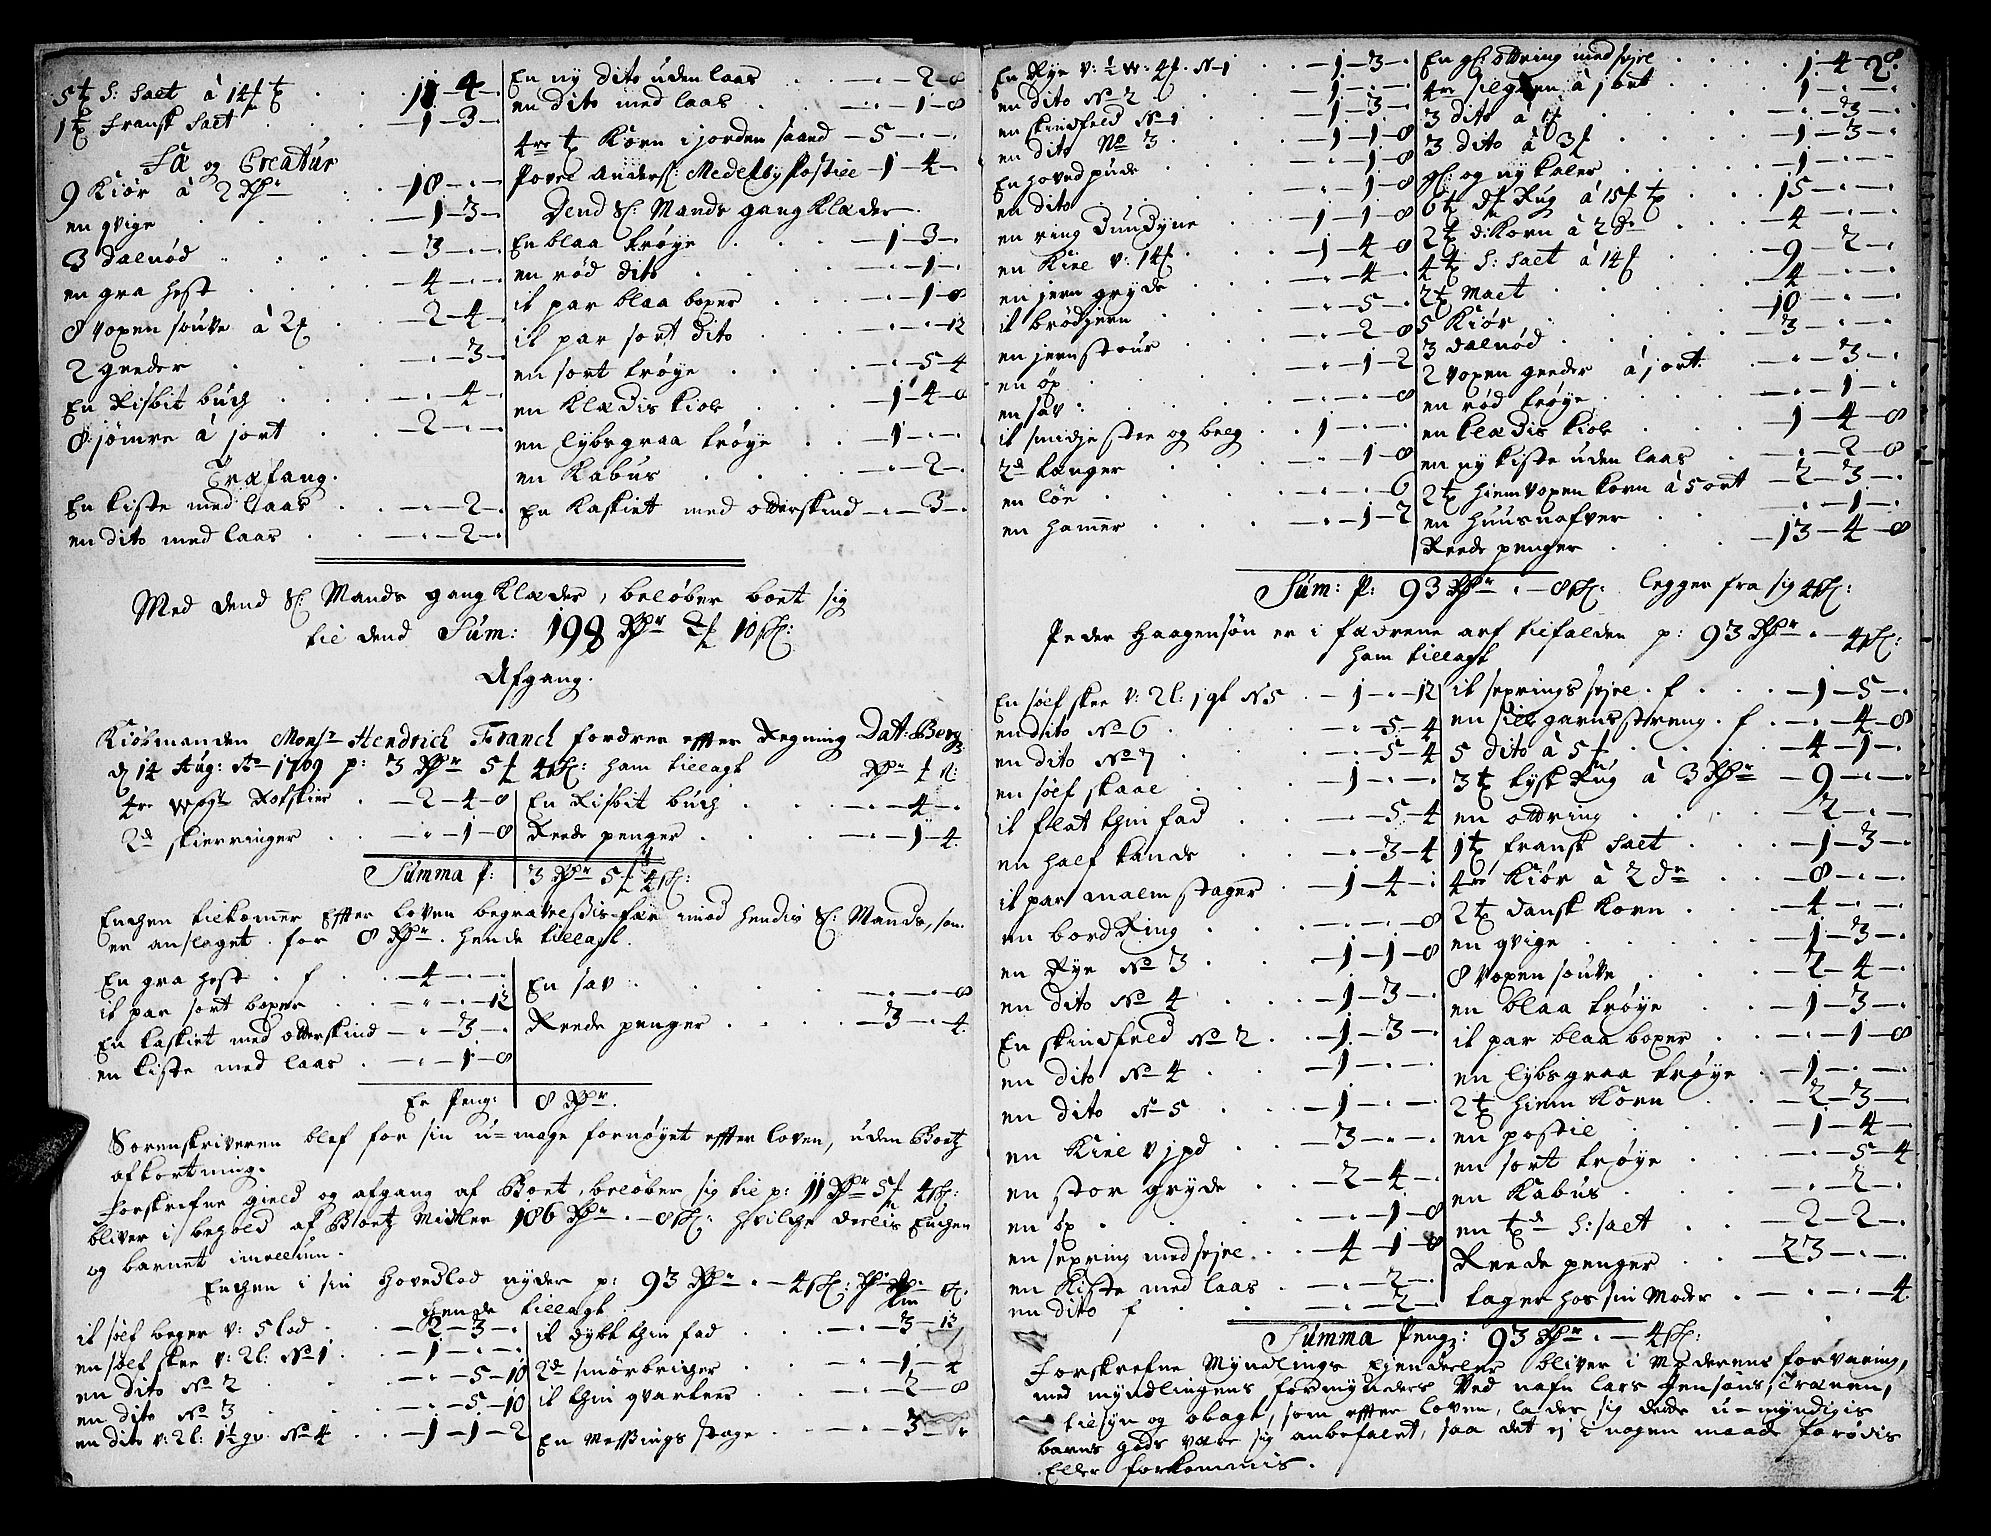 5 tr S: Salt à 14 . . . 11-4-.
1 tr Fransk Salt . . . -1-3-.
Fæ og Creatur
9 Kiör à 2 Rdr . . . -18-.-
en qvige . . . -1-3-.
3 Dalnöd . . . -3-.-.
en gra hest . . . -4-.-.
8 voxen souve à 2 . . -2-4-.
2 geeder . . . -.-3-.
En Risbit buch . . . -.-4-.
8 jömre à 1 ort . . . -2-.-.
Træfang.
En kiste med laas . . -.-2-.
en dito med laas . . -.-2-.
En ny dito uden laas . . -.-2-8
en dito med laas . . . -.-1-8
4re tr Korn i jorden saaed -5-.-.
Povel Anders: Medelby Postill -1-4-.
Dend Sl: Mands gang Klæder.
En blaa trøye . . . -1-3-.
en rød dito . . . -.-1-.
it par blaa boxer . . . -.-1-8
it par sort dito . . . -.-.-12
en sort trøye . . . -.-5-4
en Klædis kiole . . . -1-4-8
en lybsgraa trøye . . -1-.-.
en Kabus . . . -.-2-.
En Kaskiet med otterskind -.-3-.
Med dend Sl: Mands gang Klæder, beløber boet sig
til dend Sum: 198 Rdr 2 10 s:
Afgang.
Kiöbmanden Monsr Hendrich Franck fordrer effter Regning Dat: Berg
d 14 Aug: Ao 1709 p: 3 Rdr 5 4 s: ham tillagt
4re wogr Rotskier . -2-4-8
2d skierringer . . -.-1-8
En Risbit buch . . . -.-4-.
Reede penger . . . -.-1-4.
Summa p: 3 Rdr 5 4 s:
Enchen tilkommer effter loven begravelsis-fær imod hendis Sl: Mands, som
er anslaget for 8 Rdr. hende tillagt.
En gra hest . f . . -4-.-.
it par sort boxer . . -.-.-12
En kaskiet med otterskind -.-3-.
en kiste med laas . -.-1-8
En sav . . . -.-.-8
Reede penger . . . -3-.-4
Er Peng: 8 Rdr.
Sorenskriveren blef for sin u=mage fornøyet effter loven, uden Boetz
afkortning.
Forskrefne gield og afgang af Boet, beløber sig til p: 11 Rdr 5 4 s:
bliver i behold af Boetz Midler 186 Rdr . - 8 s: hvilche deelis Enchen
og barnet imellum.
Enchen i sin Hovedlod nyder p: 93 Rdr . - 4 s:
hende tillagt
it sølf beger v: 5 lod . . -2-3-.
en sølf skee v: 2l: No 1 . -1-.-.
en dito No 2 . . . -.-5-10
en dito No 3 . . . -.-5-10
en dito v: 2l: 1½ qv. No 4 . . -1-1-2
it dybt thin fad . . . -.-3-13
2d smörbricher . . . -.-1-4
it thin qvarteer . . . -.-2-8
En Messings stage . . -.-3-
En Rye v: ½ W: 4 N-1 . . -1-3-.
en dito No 2 . . . -1-.-.
en skindfeld No 1 . . -1-3-.
en dito No 3 . . . -1-1-8
En hovedpude . . . -.-1-8
en dito . . . -.-1-8
en ring Dundyne . . . -1-1-8
en Kiel v: 14 . . . -1-4-8
en jern gryde . . . -.-4-.
it brödjern . . . -.-5-.
en jernstour . . . -.-2-8
en öx . . . -.-1-2
en sav . . . -.-.-8
it smidje stee og belg . . 1-.-.
2d tanger . . . -.-1-8
en löe . . . -.-.-6
en hamer . . . -.-1-2
En gl ottring med sejle . . . 1-4-28
4re silgarn à 1 ort . . . 1-.-.
3 dito à 1 . . . -.-3-.
3 dito à 3 . . . -1-3-.
gl og ny kaler . . . -1-.-.
6 tr Rug à 15 tr . . . 15-.-.
2 tr d: Korn à 2 Dr . . . -4-.-.
4 tr S: Salt à 14 . . . -9-2-.
2 tr Malt . . . -4-.-.
5 Kiör . . . -10-.-.
3 Dalnöd . . . -3-.-.
2 voxen geeder à 1 ort. -.-3-.
en rød trøye . . . -.-1-.
en klædis kiole . . . -1-4-8
en ny kiste uden laas . . -.-2-8
2 tr hiemvoxen korn à 5 ort -2-3-.
en huusnafver . . . -.-1-.
Reede penger . . . -13-4-8
Sum: P: 93 Rdr . - 8 s: legger fra sig 4 s:
Peder Haagensøn er i fædrene arf tilfalden p: 93 Rdr . - 4 s:
ham tillagt
En sølf skee v: 2l: 1 qt N5 . -1-.-12
en dito No 6 . . . -.-5-4
en dito No 7 . . . -.-5-4
en sølf skaal . . . -1-.-.
it flat thin fad . . . -.-5-4
en half kande . . . -.-3-4
it par malmstager . . -1-4-.
en bord Ring . . . -.-.-8
en Rye No 3 . . . -1-1-8
en dito No 4 . . . -1-3-.
En skindfeld No 2 . . -1-3-.
en dito No 4 . . . -1-.-.
en dito No 5 . . . -1-.-.
en Kiel v 1 pd . . . -3-.-.
en stor gryde . . . 2-4-.
en öx . . . -.-1-8
en sexring med sejle . . -4-1-8
en Kiste med laas . . -.-2-.
en dito f . . . -.-2-.
it sexrings sejle . f . . . -1-5-.
en silegarnsstreng . f . -.-4-8
5 dito à 5 . . . -4-1-.
3 tr tysk Rug à 3 Rdr -9-.-.
en ottring . . . -2-.-.
1 tr fransk Salt . . . -1-3-.
4re Kiör à 2 Dr . . . -8-.-.
2 tr dansk korn . . . -4-.-.
en qvige . . . -1-3-.
8 voxen souve . . . -2-4-.
en blaa trøye . . . -1-3-.
it par blaa boxer . . . -.-1-8
en lybsgraa trøye . . -1-.-.
2 tr hiem Korn . . . -2-3-.
en postil . . . -1-4-.
en sort trøye . . . -.-5-4
en Kabus . . . -.-2-.
en tr S: salt . . . -2-2-.
Reede penger . . . -23-.-.
tager hos sin Moder . . -.-.-4
Summa Peng: 93 Rdr . - 4 s:
Forskrefne Myndlings ejendeeler bliver i Moderens forvaring,
med myndlingens formynders ved nafn Lars Jensøns, Trænen,
tilsyn og obagt, som effter loven, lader sig dette u-myndigis
barns gods være sig anbefalet, saa det ej i nogen maade forødis
Eller forkommis.